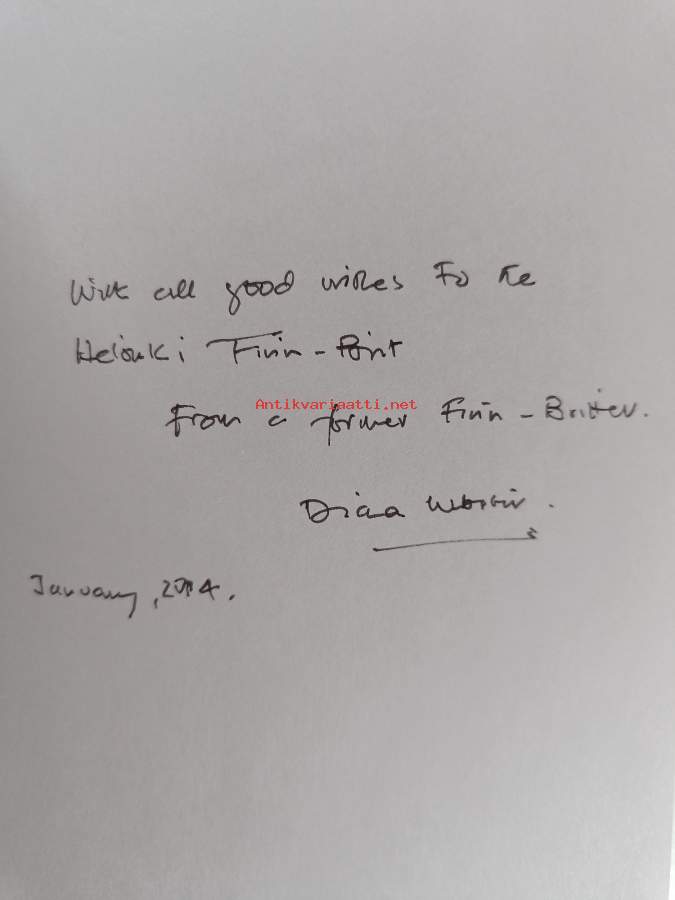 With all good wishes to the
Helsinki Finn-Brit
Antikvariaatti.net
From a former Finn-Britter.
Diana Webster.
January, 2014.